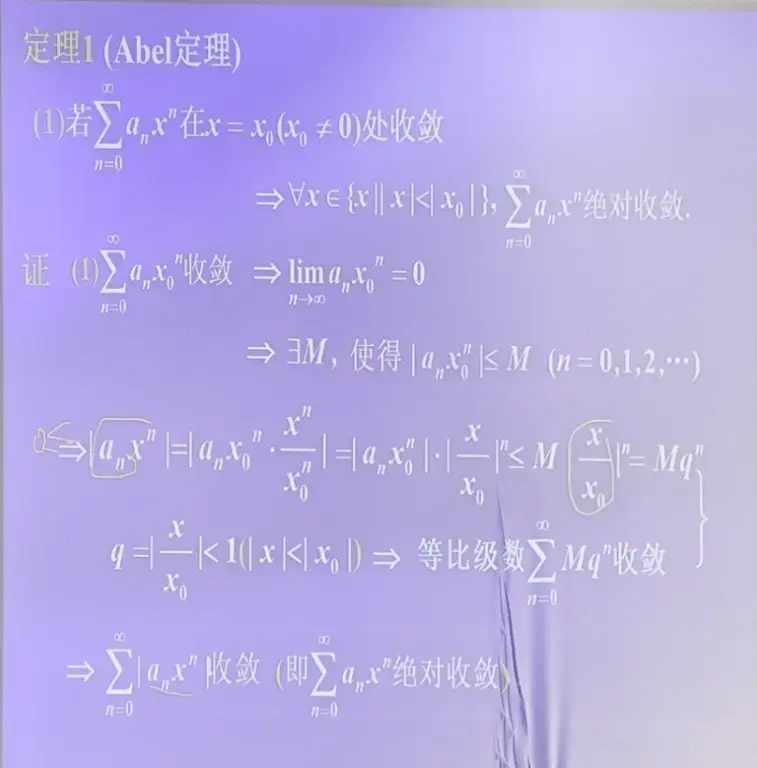 定理1 (Abel定理)
(1)若∑_{n=0}^{∞} a_n x^n 在x = x_0 (x_0 ≠ 0)处收敛
⇒ ∀x ∈ {x || x |<| x_0 |}, ∑_{n=0}^{∞} a_n x^n 绝对收敛.
证 (1) ∑_{n=0}^{∞} a_n x_0^n 收敛 ⇒ lim_{n→∞} a_n x_0^n = 0
⇒ ∃M, 使得 | a_n x_0^n | ≤ M (n = 0,1,2,⋯)
0≤ ⇒ | a_n x^n | = | a_n x_0^n · x^n / x_0^n | = | a_n x_0^n | · | x / x_0 |^n ≤ M | x / x_0 |^n = Mq^n
q = | x / x_0 | < 1 (| x |<| x_0 |) ⇒ 等比级数 ∑_{n=0}^{∞} Mq^n 收敛
⇒ ∑_{n=0}^{∞} | a_n x^n | 收敛 (即 ∑_{n=0}^{∞} a_n x^n 绝对收敛)